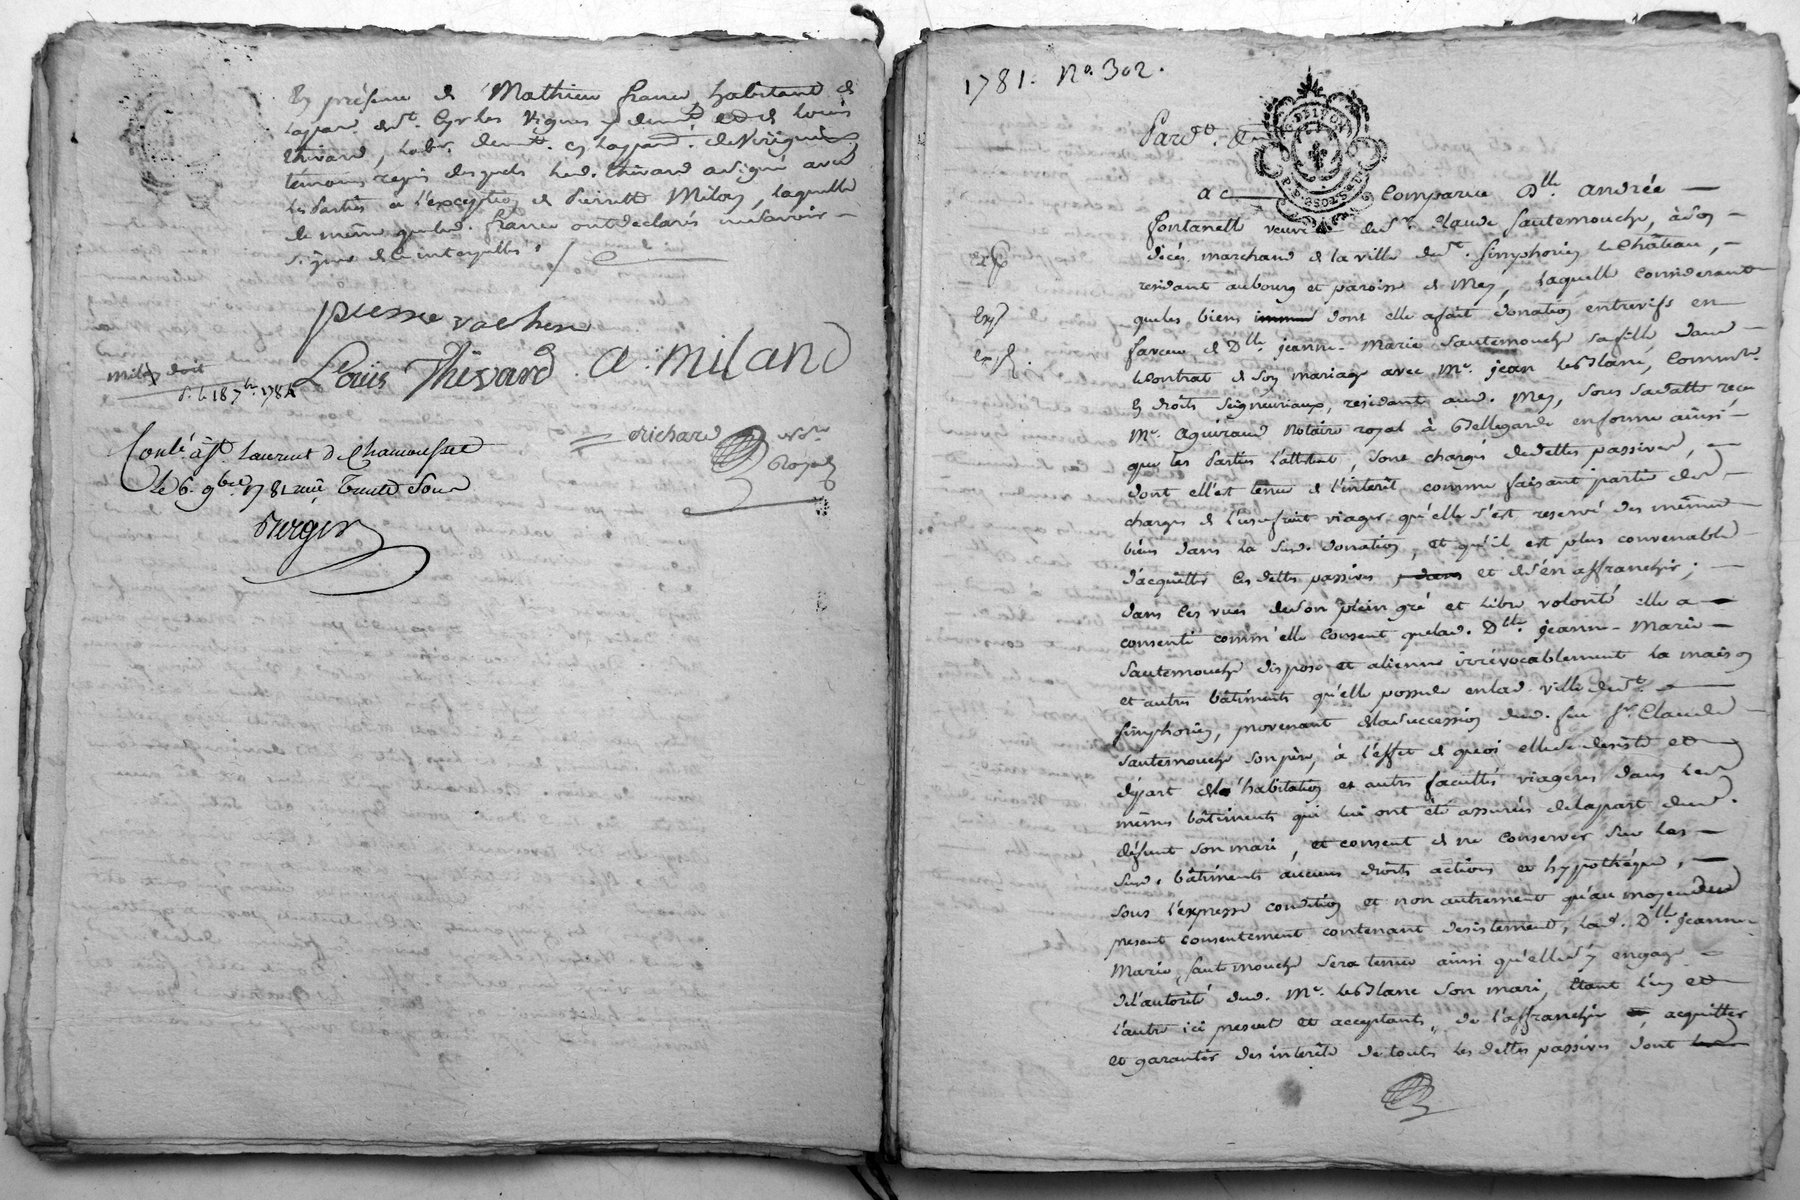 En présence de Mathieu france habitant de
lad. par. de St. Cyr les Vignes et de Louis
thivard, habt.
témoins requis desquels led. thivard a signé avec
les parties a l'exception de Pierrette Milan, laquelle
de même que led. france ont déclarés ne savoir
signer de ce interpellés
pierre vacheron
Louis Thivard a. miland
Milan doit
Richard Nore.
Royal
Conlé à St. Laurent de Chamousset
le 6. 9bre. 1781 reçu trente sous
Purgir
1781. No. 302.
Pardt.
G. DE LYON
a c Comparue Dlle. andrée
fontanelle veuve de Sr. Claude Sautemouche, à son
décés marchand de la ville de St. simphorien le Château,
residant au bourg et paroisse de Mey, laquelle considerant
que les biens dont elle a fait donation entrevifs en
faveur de Dlle. jeanne-Marie Sautemouche sa fille dans
le contrat de son mariage avec Me. jean leblanc, Commre.
en droits seigneuriaux, residant aud. Mey, sous sa datte reçu
Me. aguiraud Notaire royal à Bellegarde en forme ainsi
que les parties l'attestent, sont chargés de dettes passives,
dont elle est tenue de l'interêt comme faisant partie des
charges de l'usufruit viager qu'elle s'est reservé des mêmes
biens dans la susd. donation, et qu'il est plus convenable
d'acquitter les dettes passives et de s'en affranchir;
dans ces vues de son plein gré et libre volonté elle a
consenti comm'elle consent que lad. Dlle. jeanne-Marie
Sautemouche dispose et aliene irrévocablement la maison
et autres bâtiments qu'elle possede en lad. ville de St.
simphorien, provenant de la succession dud. feu Sr. Claude
Sautemouche son père, à l'effet de quoi elle se desiste et
départ de l'habitation et autres facultés viageres dans lesd.
mêmes bâtiments qui lui ont été assurées de la part dud.
défunt son mari, et consent de ne conserver sur les
susd. bâtiments aucuns droits actions et hypotheque,
sous l'expresse condition et non autrement qu'au moyen du
present consentement contenant desistement, lad. Dlle. jeanne
Marie Sautemouche sera tenue ainsi qu'elle s'y engage
de l'autorité dud. Me. leblanc son mari, étant l'un et
l'autre ici present et acceptants, de l'affranchir acquitter
et garantir des interêts de toutes les dettes passives dont